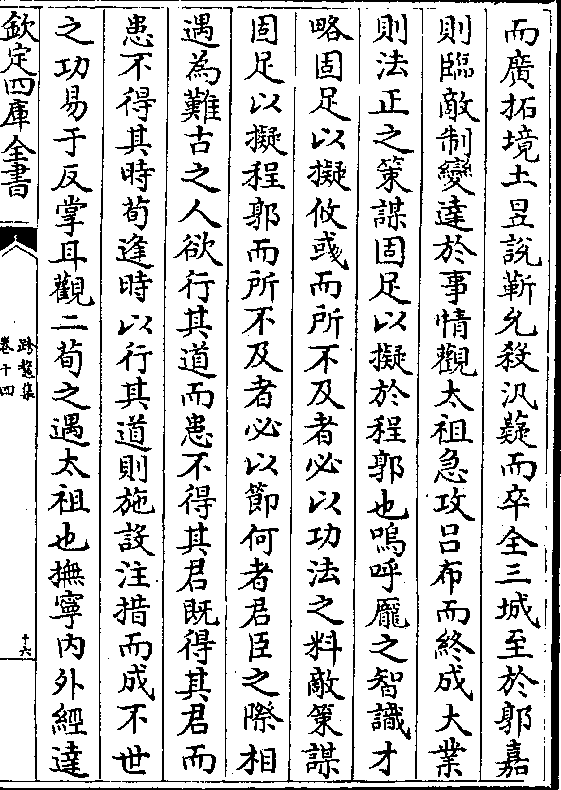 而廣拓境土昱說靳允殺汎嶷而卒全三城至於郭嘉
則臨敵制變達於事情觀太祖急攻呂布而終成大業
則法正之策謀固足以擬於程郭也嗚呼龎之智識才
略固足以擬攸彧而所不及者必以功法之料敵策謀
固足以擬程郭而所不及者必以節何者君臣之際相
遇為難古之人欲行其道而患不得其君既得其君而
患不得其時荀逢時以行其道則施設注措而成不世
之功易于反掌耳觀二荀之遇太祖也撫寧内外經達
欽定四庫全書
跨鼇集
卷十四
十六